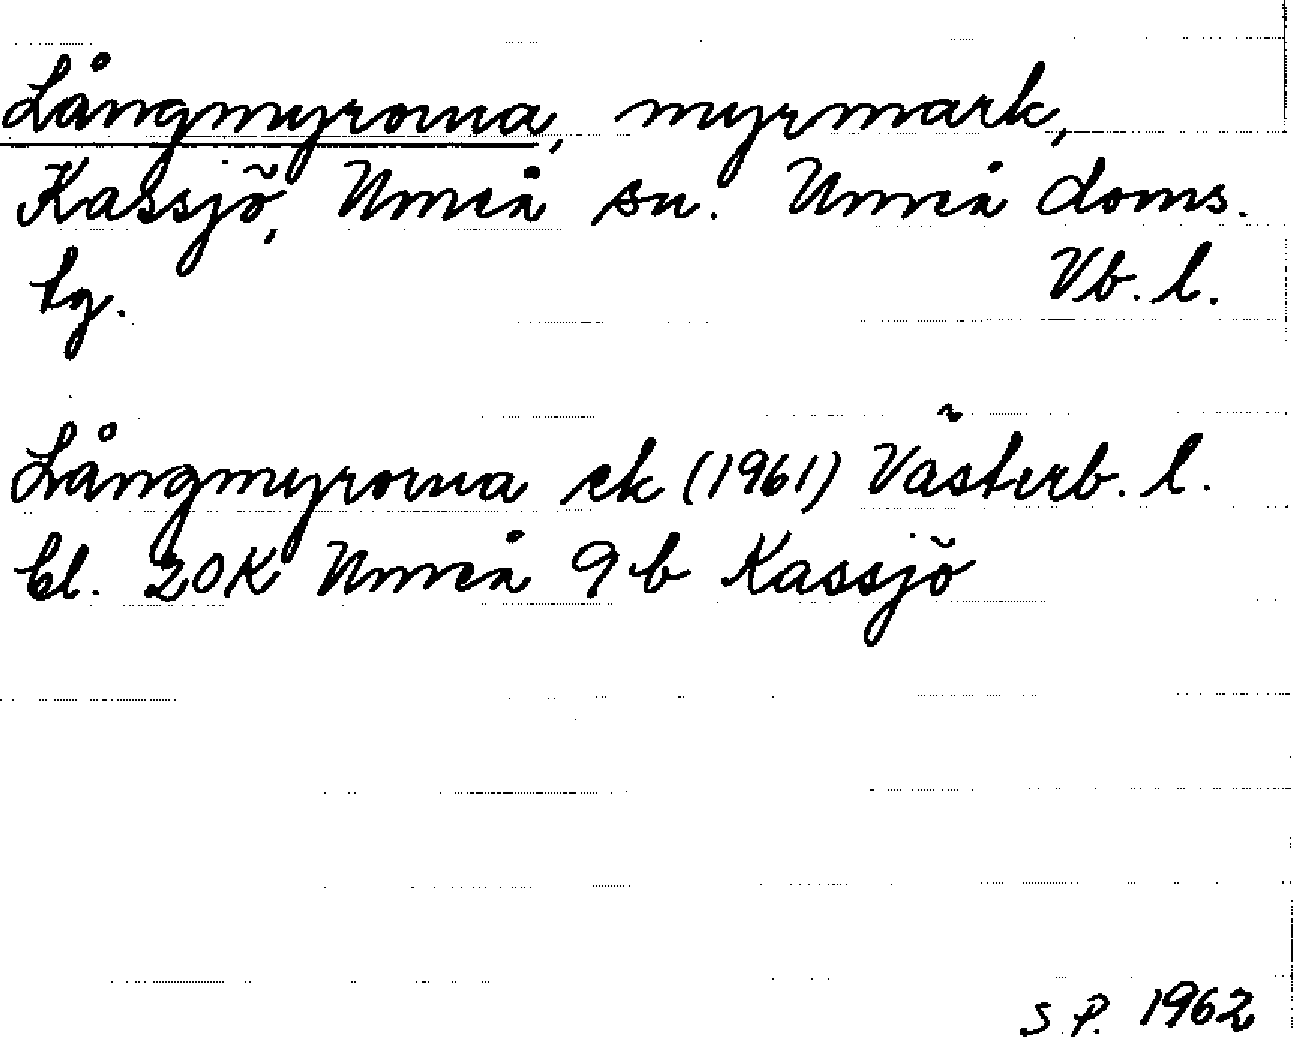 Långmyrorna, myrmark,
Kassjö, Umeå sn. Umeå doms.
tg. Vb. l.
Långmyrorna ek (1961) Västerb. l.
bl. 20K Umeå 9b Kassjö
S.P. 1962